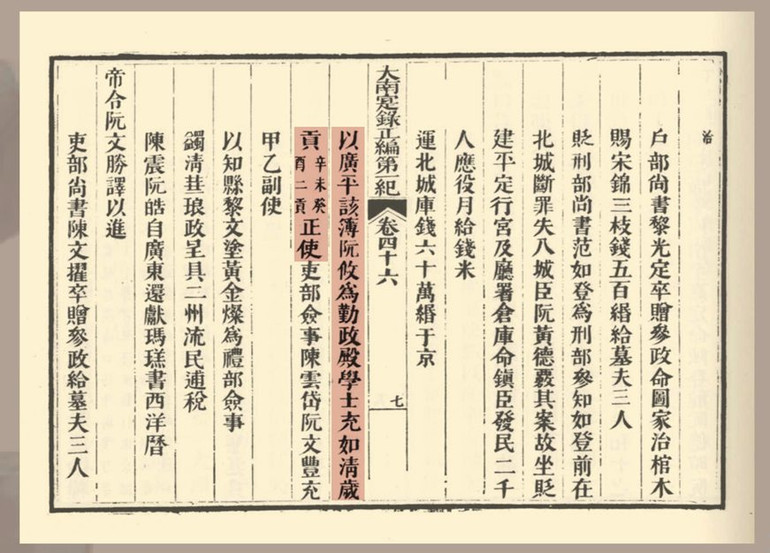 治
戶部尚書黎光定卒贈參政命圖家治棺木
賜宋錦三枝錢五百緡給墓夫三人
貶刑部尚書范如登為刑部參知如登前在
北城斷罪失入城臣阮黃德覈其案故坐貶
建平定行宮及廳署倉庫命鎮臣發民二千
人應役月給錢米
運北城庫錢六十萬緡于京
大南寔錄正編第一紀 卷四十六 七
以廣平該簿阮攸為勤政殿學士充如清歲
貢辛未癸酉二貢正使吏部僉事陳雲岱阮文豐充
甲乙副使
以知縣黎文塗黃金燦為禮部僉事
蠲清葚琅政呈具二州流民逋稅
陳震阮皓自廣東還獻瑪𤧚書西洋曆
帝令阮文勝譯以進
吏部尚書陳文擢卒贈參政給墓夫三人